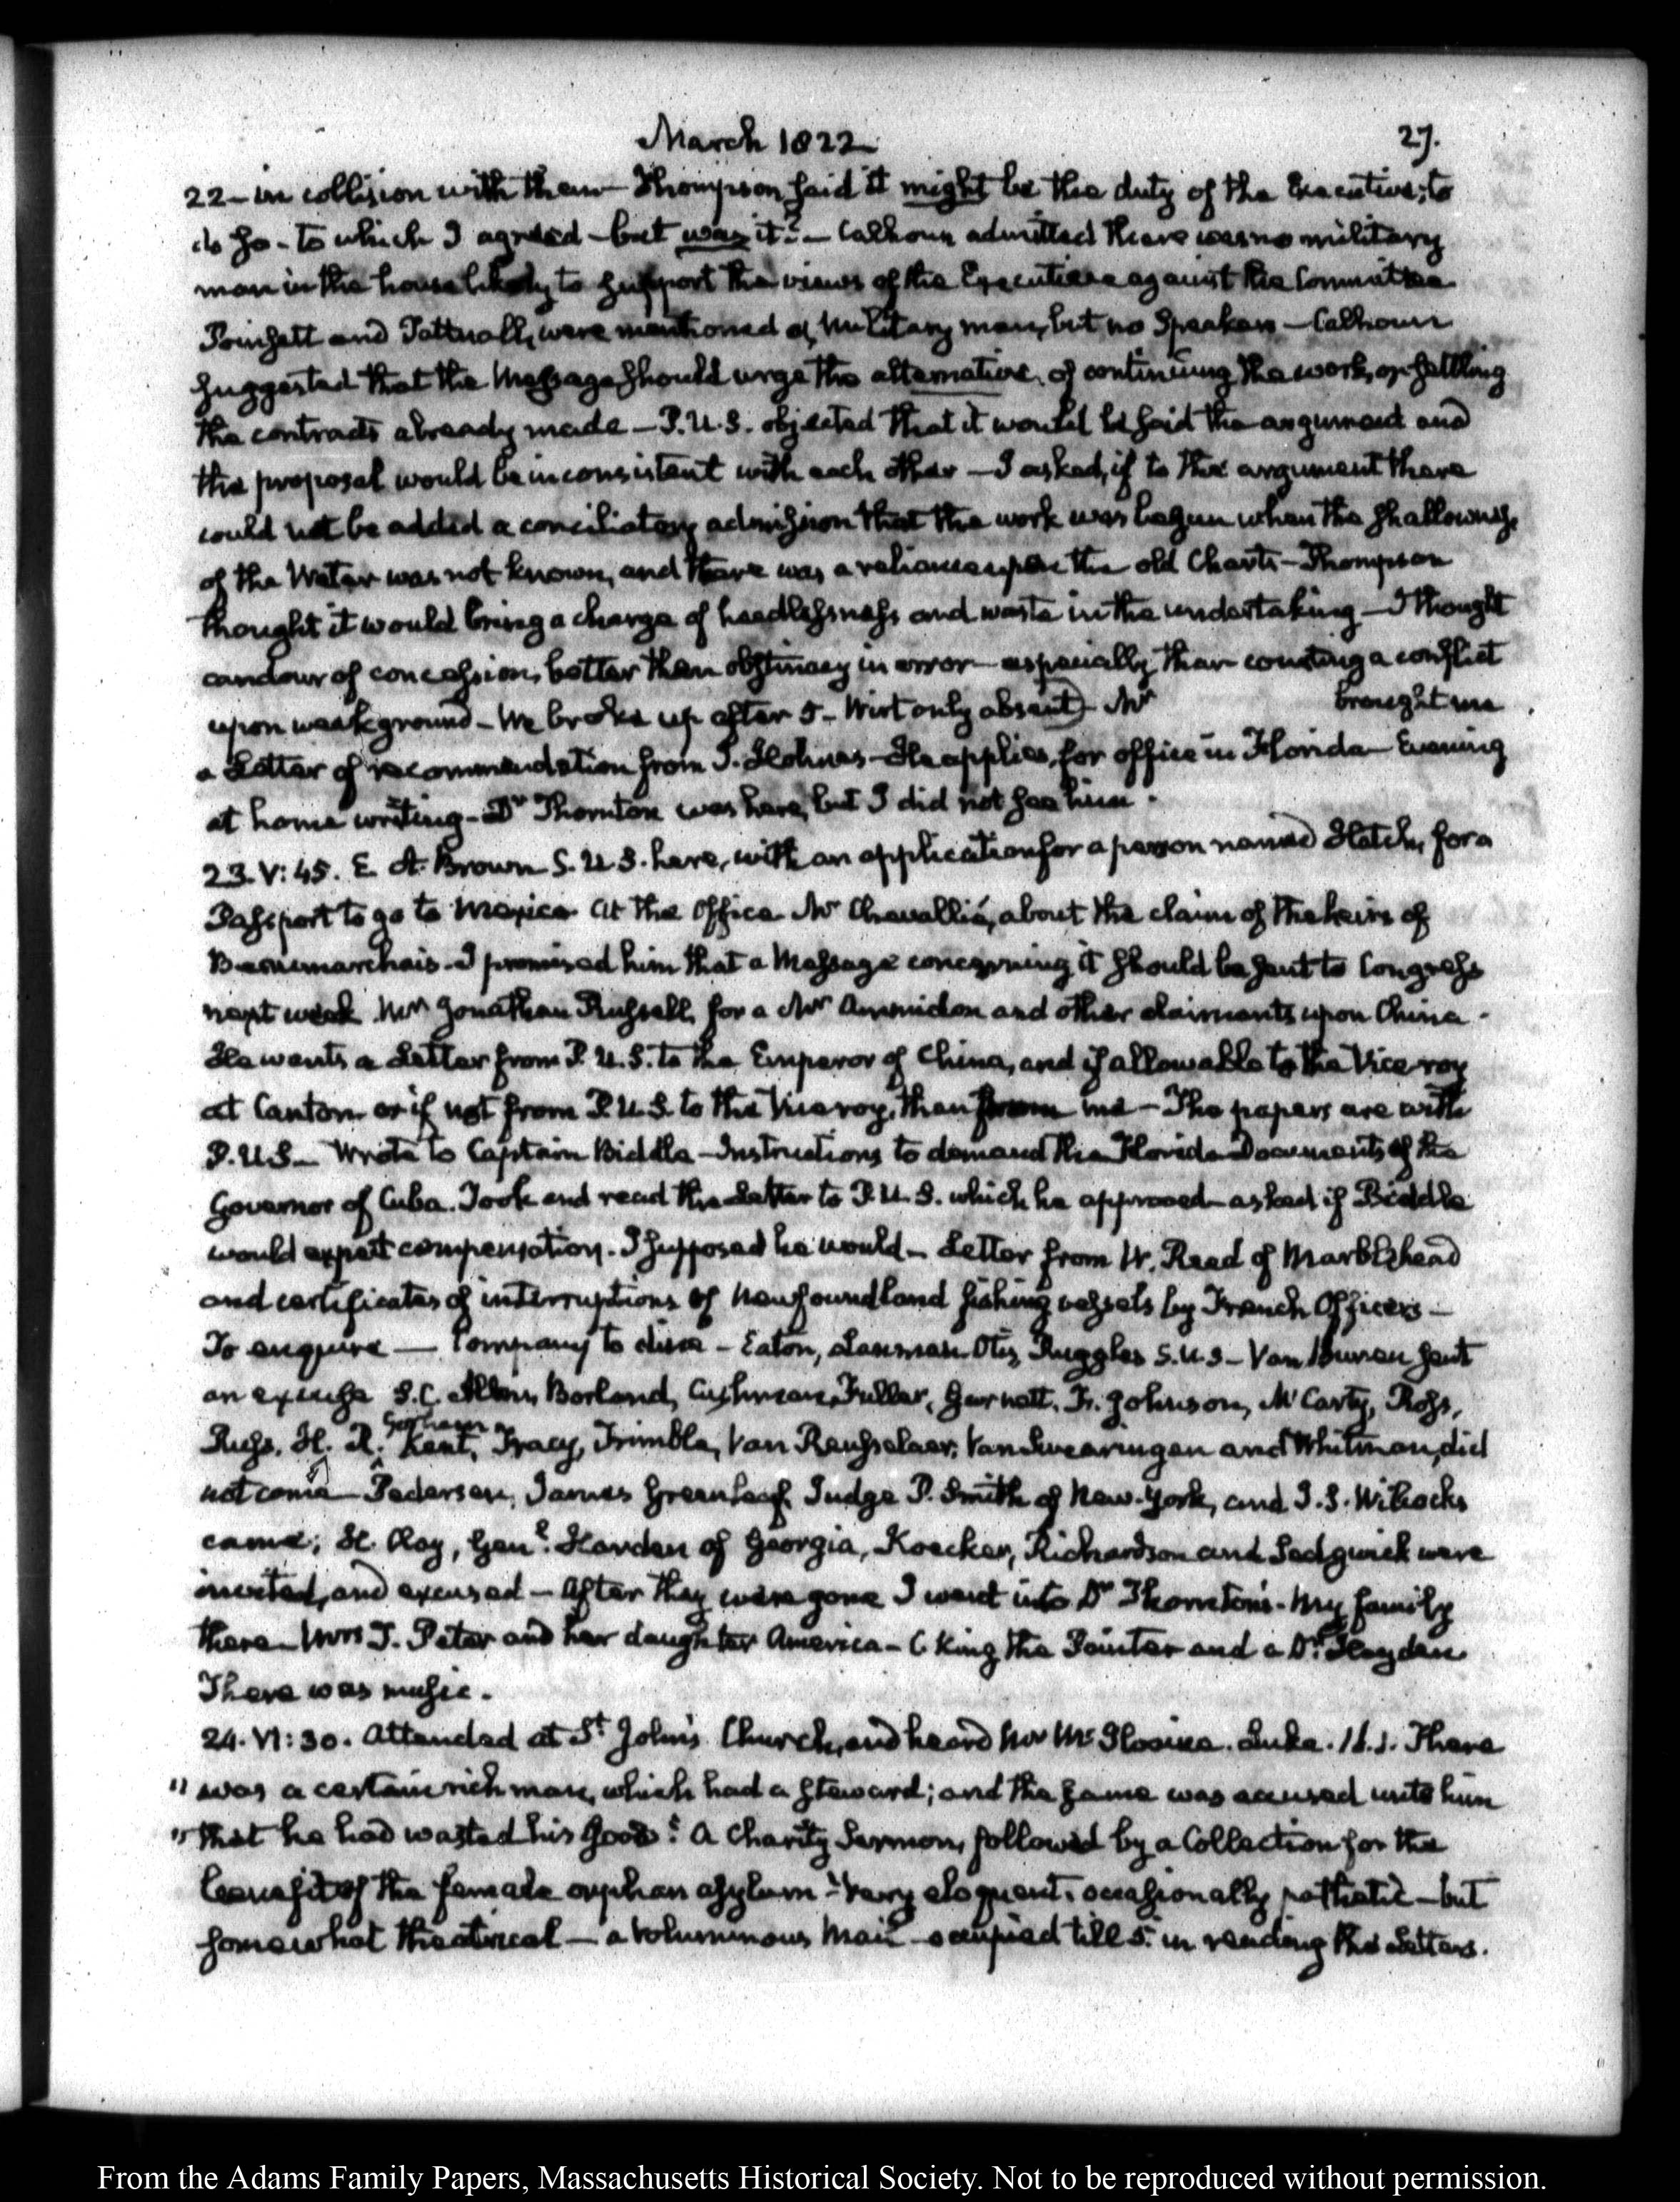 March 1822
27.
22 - in collision with them - Thompson said it might be the duty of the Executive, to
do so - to which I agreed - but was it? - Calhoun admitted there was no military
man in the house likely to support the views of the Executive against the Committee
Poinsett and Tattnall, were mentioned as military men, but no Speakers - Calhoun
suggested that the Message should urge the alternative, of continuing the work, or settling
the contracts already made - P.U.S. objected that it would be said the argument and
the proposal would be inconsistent with each other - I asked, if to the argument there
could not be added a conciliatory admission that the work was begun when the shallowness
of the Water was not known, and there was a reliance upon the old Charts - Thompson
thought it would bring a charge of heedlessness and waste in the undertaking - I thought
candour of concession, better than obstinacy in error - especially than courting a conflict
upon weak ground - We broke up after 5 - Wirt only absent) - Mr brought me
a Letter of recommendation from J. Holmes - He applies, for office in Florida - Evening
at home writing - Dr Thornton was here, but I did not see him.
23. V: 45. E. A. Brown S. U. S. here, with an application for a person named Hatch, for a
Passport to go to Mexico. At the Office Mr Chevallié, about the claim of the heirs of
Beaumarchais. I promised him that a Message concerning it should be sent to Congress
next week. Mr Jonathan Russell, for a Mr Ammidon and other claimants upon China.
He wants a Letter from P. U. S. to the Emperor of China, and if allowable to the Vice-roy
at Canton or if not from P. U. S. to the Viceroy, than from me - The papers are with
P.U.S - Wrote to Captain Biddle - Instructions to demand the Florida Documents of the
Governor of Cuba. Took and read the Letter to P. U. S. which he approved - asked if Biddle
would expect compensation. I supposed he would - Letter from W. Reed of Marblehead
and certificates of interruptions of Newfoundland fishing vessels by French Officers -
To enquire - Company to dine - Eaton, Lanman, Otis, Ruggles S.U.S - Van Buren sent
an excuse S.C. Allen, Borland, Cushman, Fuller, Garnett, Fr. Johnson, McCarty, Ross,
Gorham
Russ, H. R. Kent, Tracy, Trimble, Van Rensselaer, Van Swearingen and Whitman, did
not come - Pedersen, James Greenleaf, Judge P. Smith of New-York, and J. S. Wilcocks
came; H. Clay, Genl. Harden of Georgia, Koecker, Richardson and Sedgwick were
invited, and excused - After they were gone I went into Dr Thornton's - My family
there - Mrs T. Peter and her daughter America - C King the Painter and a Dr. Hayden
There was music.
24. VI: 30. Attended at St John's Church, and heard Mr McIlvaine. Luke. 16. 1. There
"was a certain rich man, which had a steward; and the same was accused unto him
"that he had wasted his goods". A Charity Sermon, followed by a Collection for the
benefit of the female orphan asylum - Very eloquent, occasionally pathetic - but
somewhat theatrical - a voluminous Mail occupied till 5. in reading the Letters.
From the Adams Family Papers, Massachusetts Historical Society. Not to be reproduced without permission.